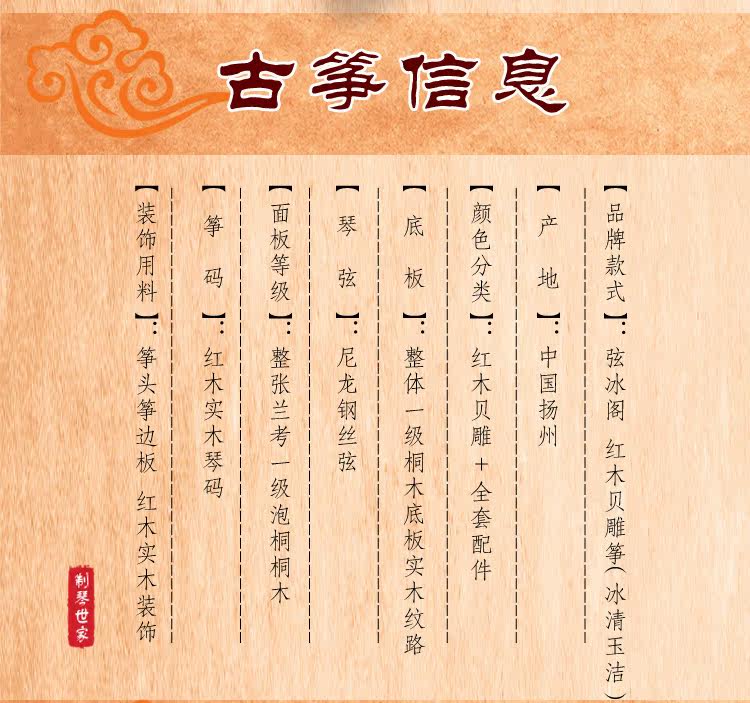 古筝信息
【品牌款式】：弦冰阁 红木贝雕筝(冰清玉洁)
【产地】：中国扬州
【颜色分类】：红木贝雕+全套配件
【底板】：整体一级桐木底板实木纹路
【琴弦】：尼龙钢丝弦
【面板等级】：整张兰考一级泡桐桐木
【筝码】：红木实木琴码
【装饰用料】：筝头筝边板 红木实木装饰
制琴世家